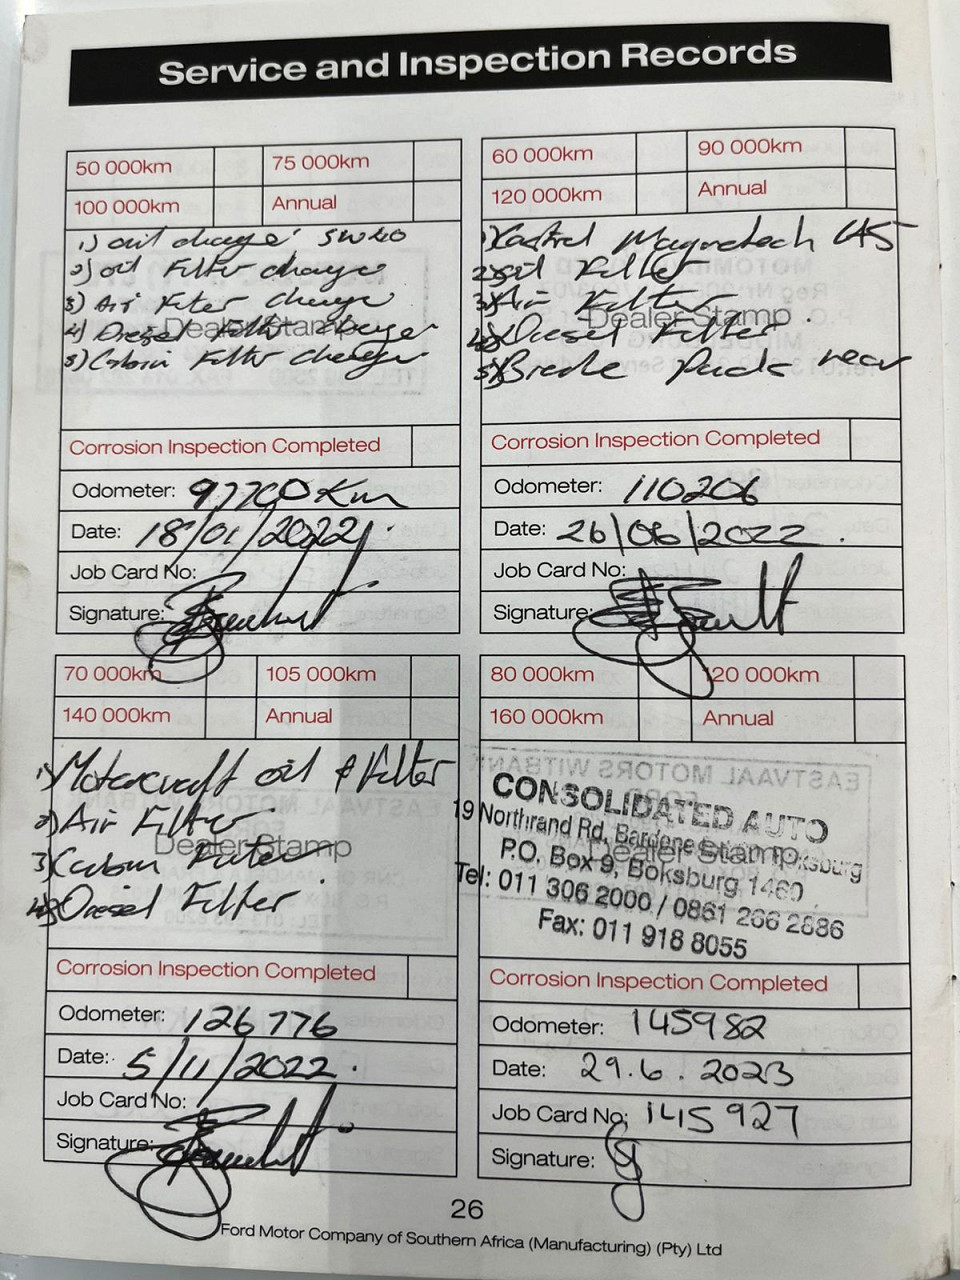 Service and Inspection Records
50 000km 75 000km
100 000km Annual
1) oil change 5W40
2) oil Filter change
3) Air Filter change
4) Diesel Filter change
Dealer Stamp
5) Cabin Filter change
Corrosion Inspection Completed
Odometer: 97700 Km
Date: 18/01/2022
Job Card No:
Signature:
60 000km 90 000km
120 000km Annual
1) Castrol Magnatech
2) oil Filter
3) Air Filter
Dealer Stamp
4) Diesel Filter
5) Brake Pads rear
Corrosion Inspection Completed
Odometer: 110206
Date: 26/06/2022.
Job Card No:
Signature:
70 000km 105 000km
140 000km Annual
1) Motorcraft oil & Filter
2) Air Filter
Dealer Stamp
3) Cabin Filter
4) Diesel Filter
Corrosion Inspection Completed
Odometer: 126776
Date: 5/11/2022.
Job Card No:
Signature:
80 000km 120 000km
160 000km Annual
CONSOLIDATED AUTO
19 Northrand Rd, Bardene Boksburg
Dealer Stamp
P.O. Box 9, Boksburg, 1460
Tel: 011 306 2000 / 0861 266 2886
Fax: 011 918 8055
Corrosion Inspection Completed
Odometer: 145982
Date: 29.6.2023
Job Card No: 145927
Signature:
26
Ford Motor Company of Southern Africa (Manufacturing) (Pty) Ltd